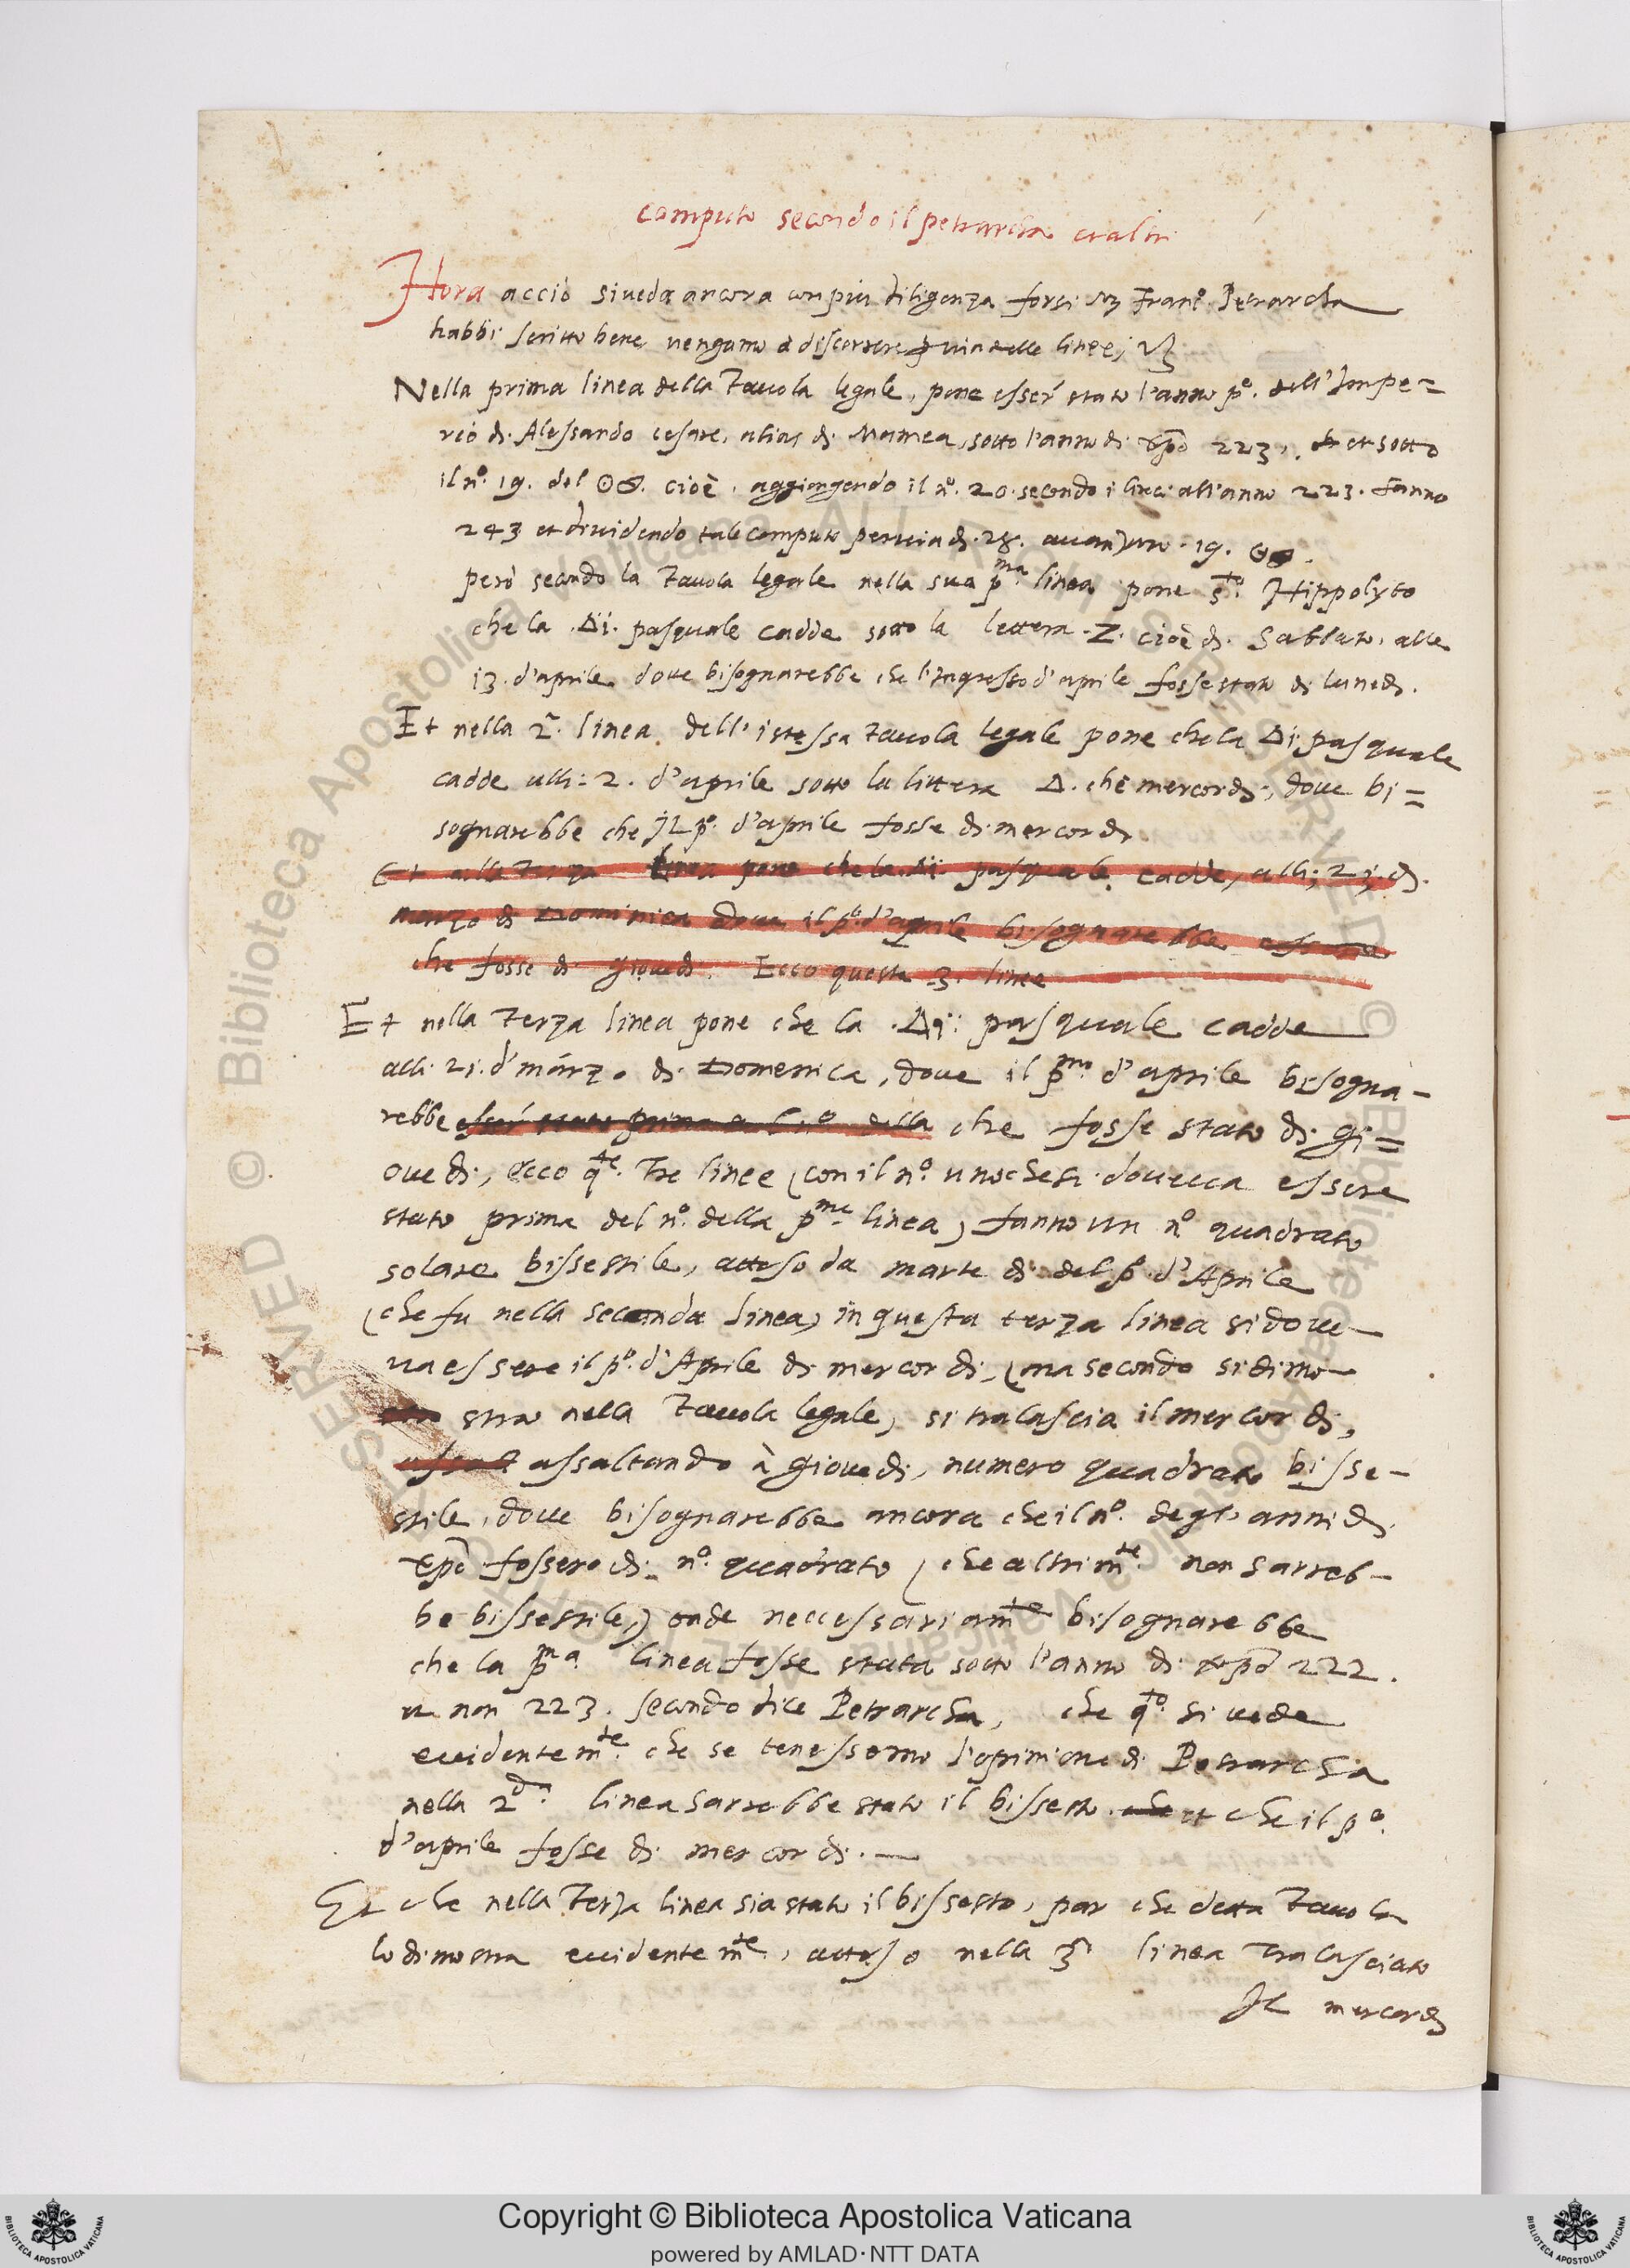 computo secondo il petrarcha et altri
Hora acciò si veda ancora con piu diligenza forsi Franc.º Petrarcha
habbi scritto bene vengamo à discorrere via delle linee;
Nella prima linea della Tavola legale, pone esser stato l'anno pº. dell'Impe=
rio di Alessandro cesare, alias di Mamea, sotto l'anno di xpõ 223, et sotto
il nº. 19. del ☉ cioè, aggiongendo il nº. 20. secondo i Greci all'anno 223. fanno
243 et dividendo tale computo per via di 28. avanzano 19. ☉
però secondo la Tavola legale nella sua pma. linea pone sto. Hippolyto
che la Δi. pasquale cadde sotto la lettera .Z. cioè di Sabbato, alle
13. d'aprile dove bisognarebbe che l'ingresso d'aprile fosse stato di lunedi.
Et nella 2ª. linea dell'istessa tavola legale pone che la Δi. pasquale
cadde alli: 2. d'aprile sotto la littera Δ. ch'è mercordi, dove bi=
sognarebbe che il pº. d'aprile fosse di mercordi
Et alla Terza linea pone che la Δi. pasquale cadde, alli; 21; di
marzo di Dominica dove il pº. d'aprile bisognarebbe
che fosse di giovedi. Ecco queste 3. linee
Et nella Terza linea pone che la .Δi: pasquale cadde
alli. 21. d'marzo di Domenica, dove il pmo. d'aprile bisogna-
rebbe esser stato prima della che fosse stato di gi=
ovedi, ecco qte. Tre linee (con il nº. uno che si doveva essere
stato prima del nº. della pma. linea) fanno un nº quadrato
solare bissestile, atteso da marte di del pº. d'Aprile
(che fu nella seconda linea) in questa terza linea si dove-
va essere il pº. d'Aprile di mercordi, (ma secondo si dimo-
stra nella Tavola legale, si tralascia il mercordi,
assaltando à giovedi, numero quadrato bisse-
stile, dove bisognarebbe ancora che il nº. degl'anni di
xpõ fossero di nº. quadrato (che altrimte. non sarreb-
be bissestile,) onde neccessariamte bisognarebbe
che la pma. linea fosse stata sotto l'anno di xpõ 222.
et non 223. secondo dice Petrarcha, che qto. si vede
evidentemte. che se tenessemo l'opinione di Petrarcha
nella 2da. linea sarrebbe stato il bissesto et che il pº.
d'aprile fosse di mercordi.
Et che nella Terza linea sia stato il bissesto, par che detta Tavola
lo dimostra evidentemte, atteso nella 3ª linea Tralasciato
Il mercordi
Copyright © Biblioteca Apostolica Vaticana
powered by AMLAD·NTT DATA